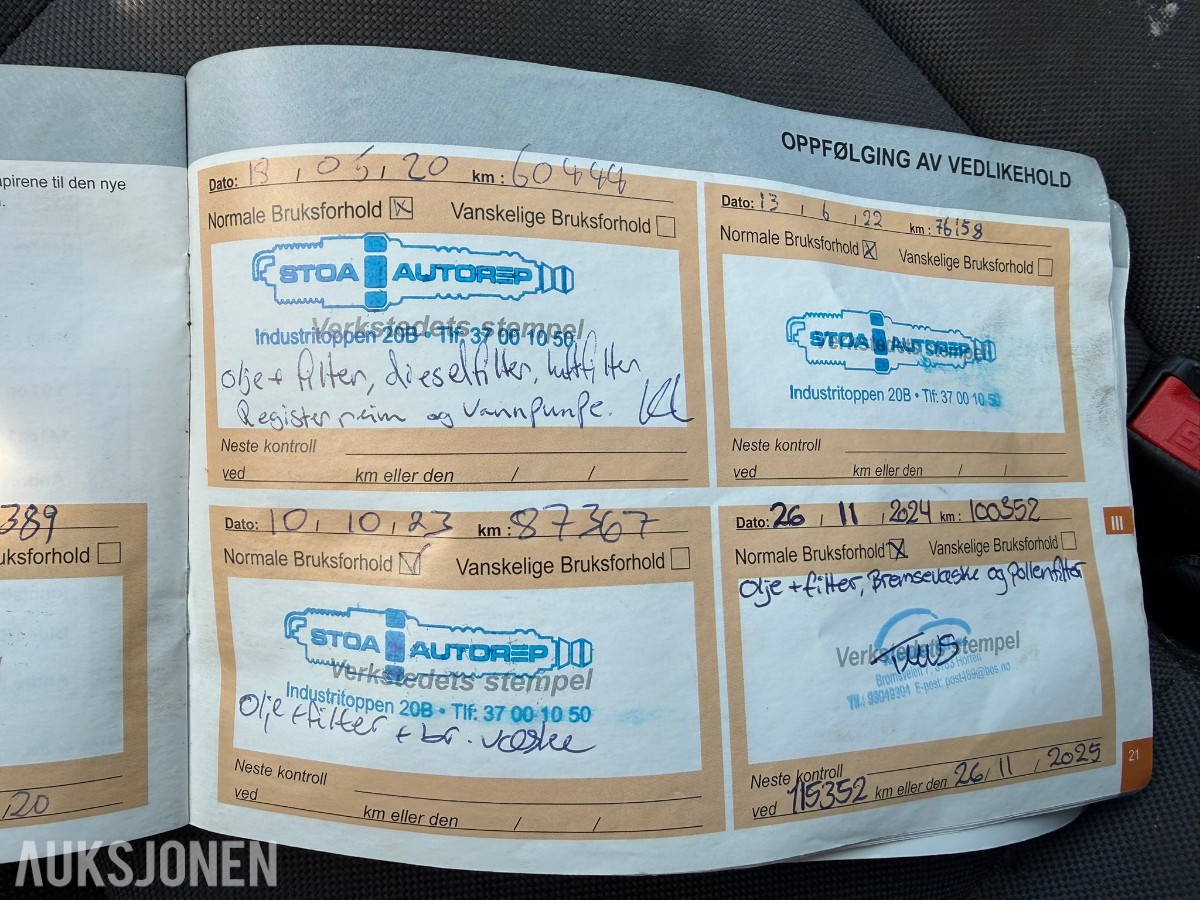 apirene til den nye
389
uksforhold
,20
OPPFØLGING AV VEDLIKEHOLD
Dato: 18 , 05 , 20 km : 60444
Normale Bruksforhold ☒ Vanskelige Bruksforhold ☐
STOA AUTOREP
Verkstedets stempel
Industritoppen 20B • Tlf: 37 00 10 50
Olje + filter, dieselfilter, luftfilter
Register reim og vannpumpe.
Neste kontroll
ved km eller den / /
Dato: 13 , 6 , 22 km : 76158
Normale Bruksforhold ☒ Vanskelige Bruksforhold ☐
STOA AUTOREP
stempel
Industritoppen 20B • Tlf: 37 00 10 50
Neste kontroll
ved km eller den / /
Dato: 10 , 10 , 23 km : 87367
Normale Bruksforhold ☑ Vanskelige Bruksforhold ☐
STOA AUTOREP
Verkstedets stempel
Industritoppen 20B • Tlf: 37 00 10 50
Olje + filter + br. væske
Neste kontroll
ved km eller den / /
Dato: 26 , 11 , 2024 km : 100352
Normale Bruksforhold ☒ Vanskelige Bruksforhold ☐
Olje + filter, Bremsevæske og Pollenfilter
Verkstedets stempel
Horten
Neste kontroll
ved 115352 km eller den 26 / 11 / 2025
III
21
AUKSJONEN